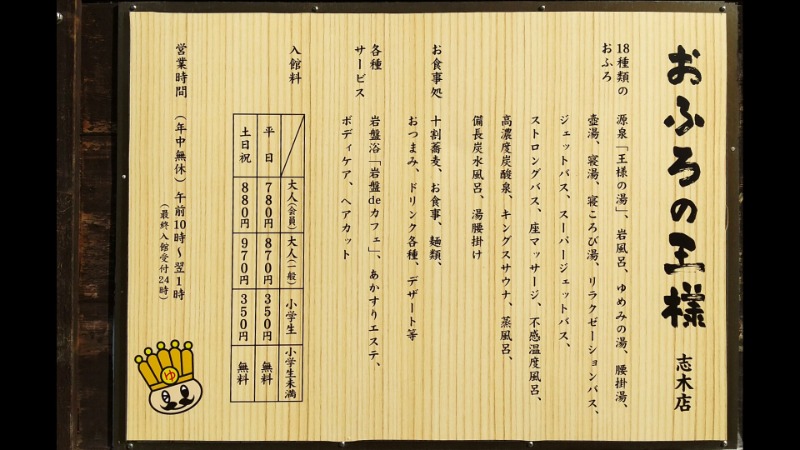 おふろの王様 志木店
18種類の
おふろ
源泉「王様の湯」、岩風呂、ゆめみの湯、腰掛湯、
壺湯、寝湯、寝ころび湯、リラクゼーションバス、
ジェットバス、スーパージェットバス、
ストロングバス、座マッサージ、不感温度風呂、
高濃度炭酸泉、キングスサウナ、蒸風呂、
備長炭水風呂、湯腰掛け
お食事処
十割蕎麦、お食事、麺類、
おつまみ、ドリンク各種、デザート等
各種
サービス
岩盤浴「岩盤deカフェ」、あかすりエステ、
ボディケア、ヘアカット
入館料
大人(会員) 大人(一般) 小学生 小学生未満
平日 780円 870円 350円 無料
土日祝 880円 970円 350円 無料
営業時間 (年中無休) 午前10時～翌1時
(最終入館受付24時)
ゆ